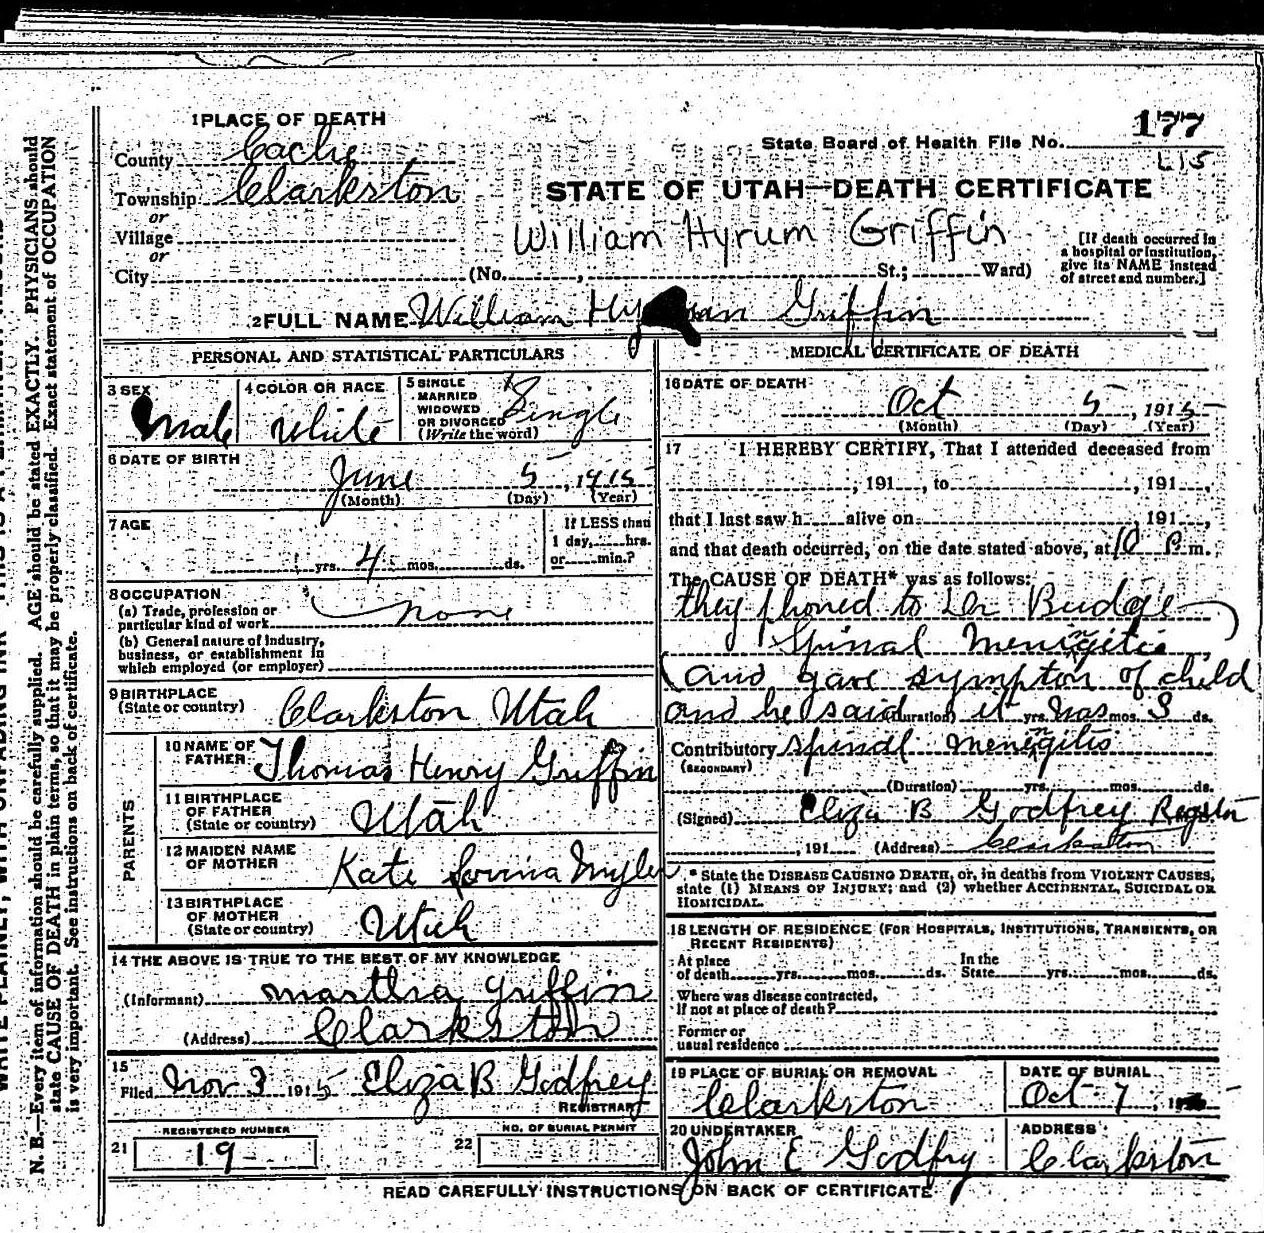 1 PLACE OF DEATH
177
State Board of Health File No.
L15
County Cache
Township Clarkston
STATE OF UTAH—DEATH CERTIFICATE
or
Village
William Hyrum Griffin
or
City (No. , St.; Ward)
[If death occurred in a hospital or institution, give its NAME instead of street and number.]
2 FULL NAME William Griffin
PERSONAL AND STATISTICAL PARTICULARS
3 SEX
Male
4 COLOR OR RACE
White
5 SINGLE
MARRIED
WIDOWED
OR DIVORCED
(Write the word)
Single
6 DATE OF BIRTH
June 5, 1915
(Month) (Day) (Year)
7 AGE
yrs. 4 mos. ds.
If LESS than
1 day, hrs.
or min.?
8 OCCUPATION
(a) Trade, profession or
particular kind of work none
(b) General nature of Industry,
business, or establishment in
which employed (or employer)
9 BIRTHPLACE
(State or country) Clarkston Utah
PARENTS
10 NAME OF
FATHER Thomas Henry Griffin
11 BIRTHPLACE
OF FATHER
(State or country) Utah
12 MAIDEN NAME
OF MOTHER Kate
13 BIRTHPLACE
OF MOTHER
(State or country) Utah
14 THE ABOVE IS TRUE TO THE BEST OF MY KNOWLEDGE
(Informant) Martha Griffin
(Address) Clarkston
15
Filed Nov 3 1915 Eliza B Godfrey
REGISTRAR
REGISTERED NUMBER
21 19
NO. OF BURIAL PERMIT
22
MEDICAL CERTIFICATE OF DEATH
16 DATE OF DEATH
Oct 5, 1915
(Month) (Day) (Year)
17 I HEREBY CERTIFY, That I attended deceased from
, 191 , to , 191 ,
that I last saw h alive on 191 ,
and that death occurred, on the date stated above, at 10 P.m.
The CAUSE OF DEATH* was as follows:
they phoned to Dr Budge
Spinal Meningitis
(and gave sympton of child
and he said (Duration) it yrs. was mos. 3 ds.
Contributory spinal meningitis
(SECONDARY)
(Duration) yrs. mos. ds.
(Signed) Eliza B Godfrey
, 191 (Address) Clarkston
* State the DISEASE CAUSING DEATH, or, in deaths from VIOLENT CAUSES,
state (1) MEANS OF INJURY; and (2) whether ACCIDENTAL, SUICIDAL OR
HOMICIDAL.
18 LENGTH OF RESIDENCE (FOR HOSPITALS, INSTITUTIONS, TRANSIENTS, OR
RECENT RESIDENTS)
At place
of death yrs. mos. ds.
In the
State yrs. mos. ds.
Where was disease contracted,
if not at place of death?
Former or
usual residence
19 PLACE OF BURIAL OR REMOVAL
Clarkston
DATE OF BURIAL
Oct 7, 19
20 UNDERTAKER
John E Godfry
ADDRESS
Clarkston
READ CAREFULLY INSTRUCTIONS ON BACK OF CERTIFICATE
N. B.—Every item of information should be carefully supplied. AGE should be stated EXACTLY. PHYSICIANS should
state CAUSE OF DEATH in plain terms, so that it may be properly classified. Exact statement of OCCUPATION
is very important. See instructions on back of certificate.